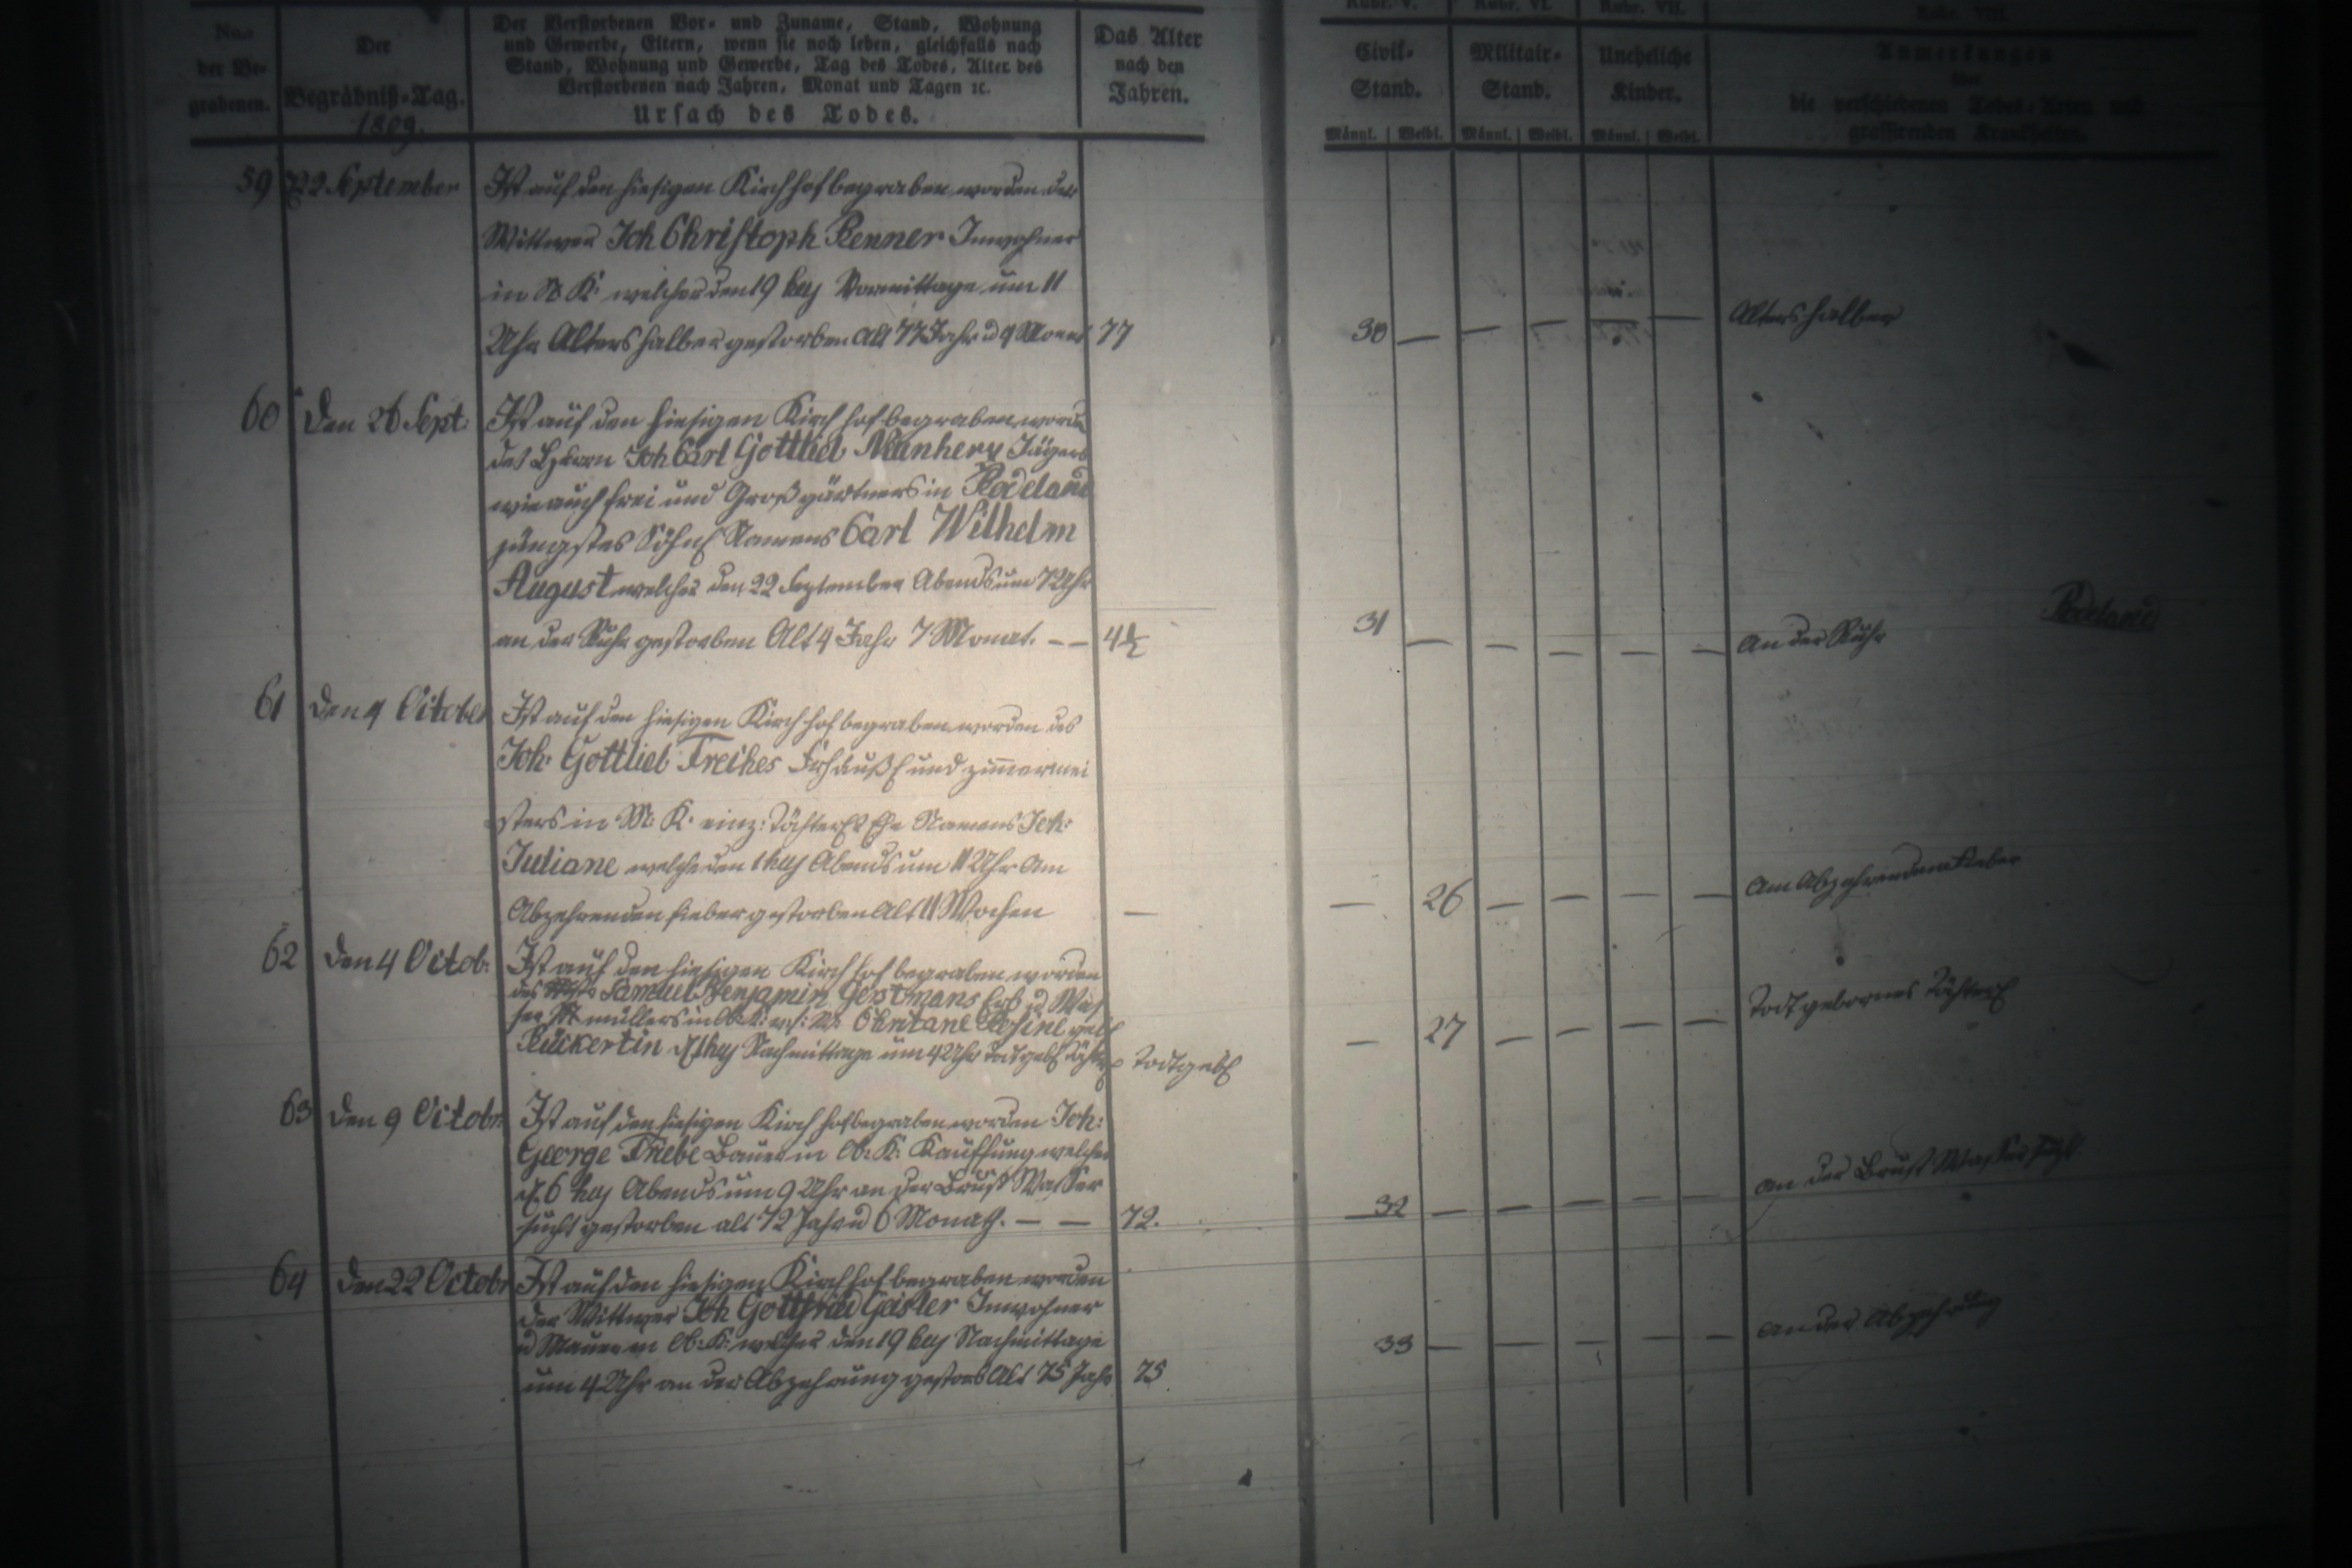 No.
der Be-
grabenen.
Der
Begräbniß-Tag.
1809.
Der Verstorbenen Vor- und Zuname, Stand, Wohnung
und Gewerbe, Eltern, wenn sie noch leben, gleichfalls nach
Stand, Wohnung und Gewerbe, Tag des Todes, Alter des
Verstorbenen nach Jahren, Monat und Tagen ꝛc.
Ursach des Todes.
Das Alter
nach den
Jahren.
Rubr. V.
Civil-
Stand.
Männl. Weibl.
Rubr. VI.
Militair-
Stand.
Männl. Weibl.
Rubr. VII.
Uneheliche
Kinder.
Männl. Weibl.
Rubr. VIII.
Anmerkungen
über
die verschiedenen Todes-Arten und
grassirenden Krankheiten.
59 22 September Ist auf den hiesigen Kirchhof begraben worden der
Wittwer Joh Christoph Renner Inwohner
in K: welcher den 19 huj Vormittage um 11
Uhr Altershalber gestorben alt 77 Jahr u 9 Monat 77 30 — — — — — Altershalber
60 Den 26 Sept: Ist auf den hiesigen Kirchhof begraben worden
des Joh Carl Gottlieb Jägers
wie auch frei und Großgärtners in Rodeland
jüngstes Söhnl Namens Carl Wilhelm
August welcher den 22 September Abends um 7 Uhr
an der Ruhr gestorben Alt 4 Jahr 7 Monat. — — 4½ 31 — — — — — An der Ruhr Rodeland
61 Den 4 October Ist auf den hiesigen Kirchhof begraben worden des
Joh: Gottlieb Freches Frhäußl und zimmermei
sters in M: K: einz: Töchterl Namens Joh:
Juliane welche den 1 huj Abends um 11 Uhr Am
Abzehrenden fieber gestorben Alt 11 Wochen — — 26 — — — — Am Abzehrenden Fieber
62 Den 4 Octob: Ist auf den hiesigen Kirchhof begraben worden
des Samuel Benjamin Gerstmans Erb u Was
ser müllers in Christane Rosine geb
Rückertin d 1 huj Nachmittage um 4 Uhr todtgeb Töchterl Todtgebl — 27 — — — — Todtgebornes Töchterl
63 Den 9 Octobr: Ist auf den hiesigen Kirchhof begraben worden Joh:
George Friebe Bauer in Ob: K: Kauffung welcher
d. 6 huj Abends um 9 Uhr an der Brust Wasser
sucht gestorben alt 72 Jahr u 6 Monath. — — 72. 32 — — — — — An der Brust Wassersucht
64 Den 22 Octobr Ist auf den hiesigen Kirchhof begraben worden
der Wittwer Joh Gottfried Geisler Inwohner
u Mauer in Ob: K: welcher den 19 huj Nachmittage
um 4 Uhr an der Abzehrung gestorb Alt 75 Jahr 75 33 — — — — — An der Abzehrung